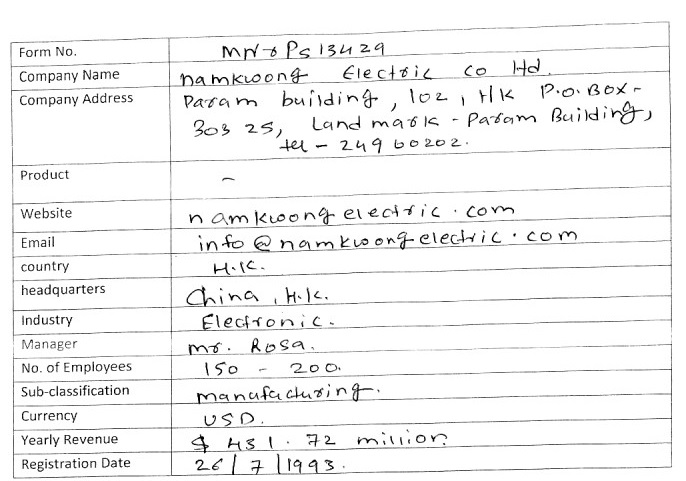 Form No. MNrPS13429
Company Name namkwong Electric co ltd.
Company Address Param building, 102, H/K P.O. Box -
303 25, Landmark - Param Building,
tel - 249 60202.
Product -
Website namkwongelectric.com
Email info@namkwongelectric.com
country H.K.
headquarters China, H.K.
Industry Electronic.
Manager mr. Rosa.
No. of Employees 150 - 200.
Sub-classification manufacturing.
Currency USD.
Yearly Revenue $ 431.72 million
Registration Date 26/7/1993.